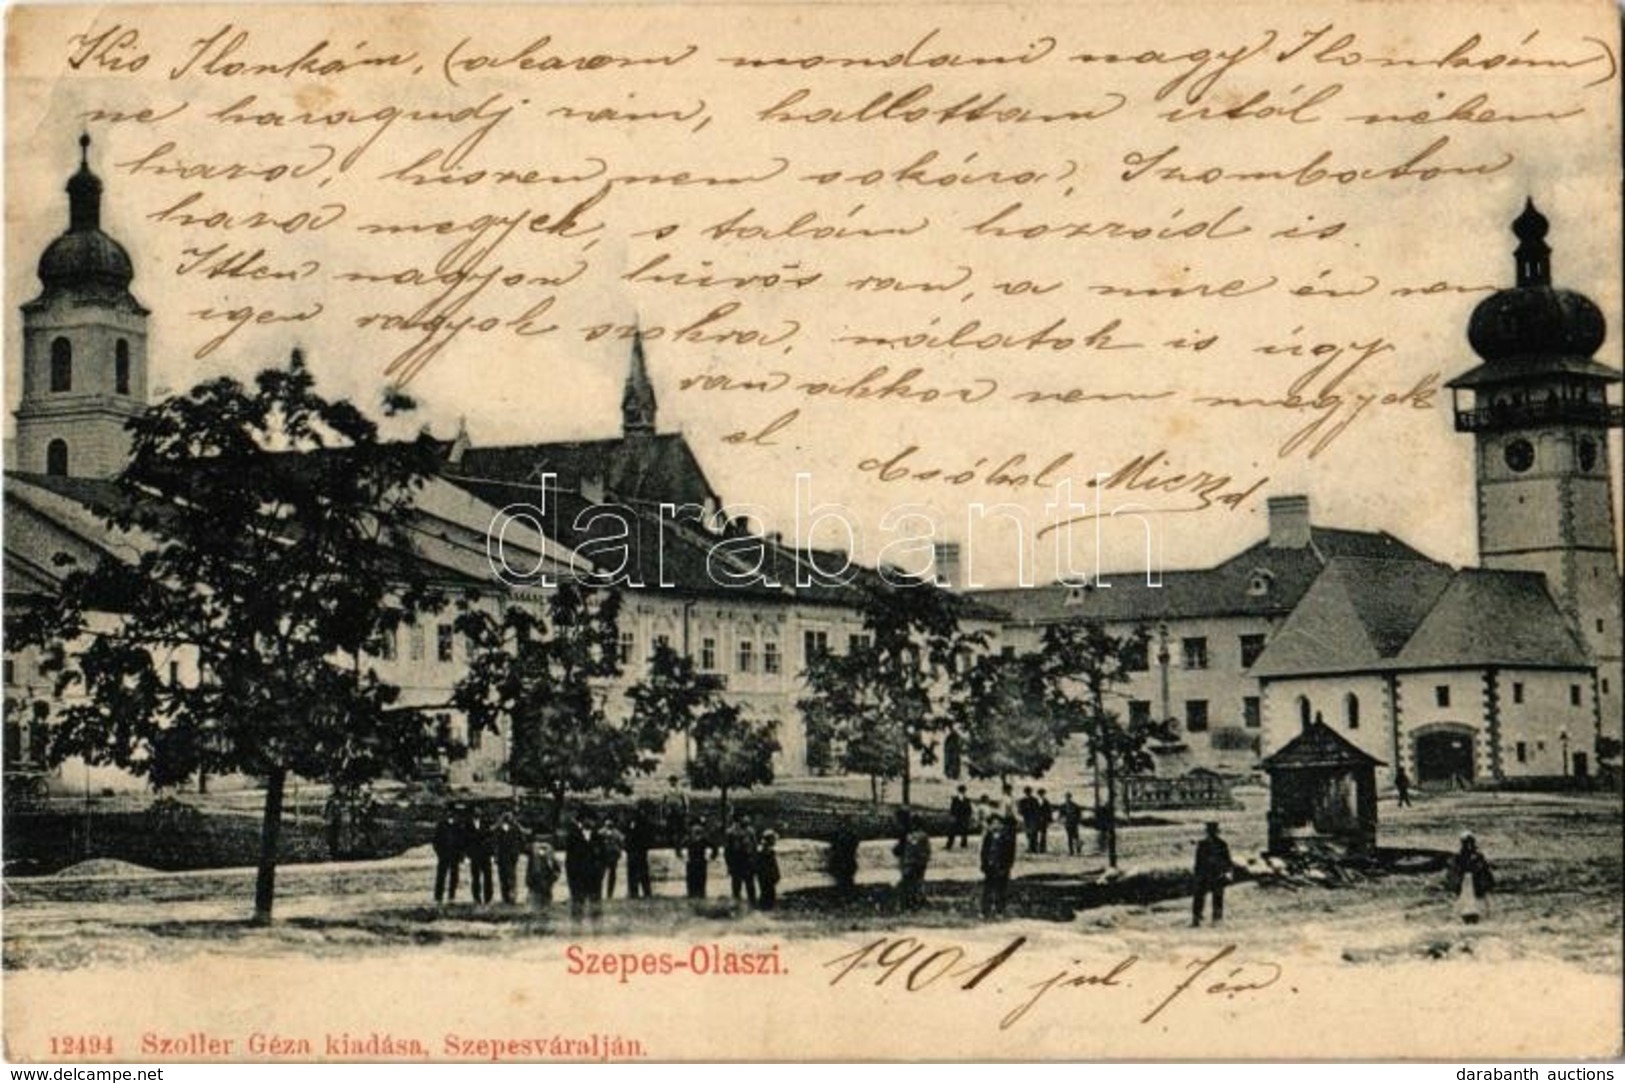 Kis Ilonkám, (akarom mondani nagy Ilonkám)
ne haragudj rám, hallottam
haza, hiszen nem sokára, Szombaton
haza megyek, s talán hozzád is.
Itten nagyon hüvös van, a mire én nem
igen vagyok szokva, nálatok is úgy
van akkor nem megyek
el.
Csókol Miczid.
darabanth
Szepes-Olaszi. 1901. jul. 7én.
12494 Szoller Géza kiadása, Szepesváralján.
www.delcampe.net
darabanth auctions